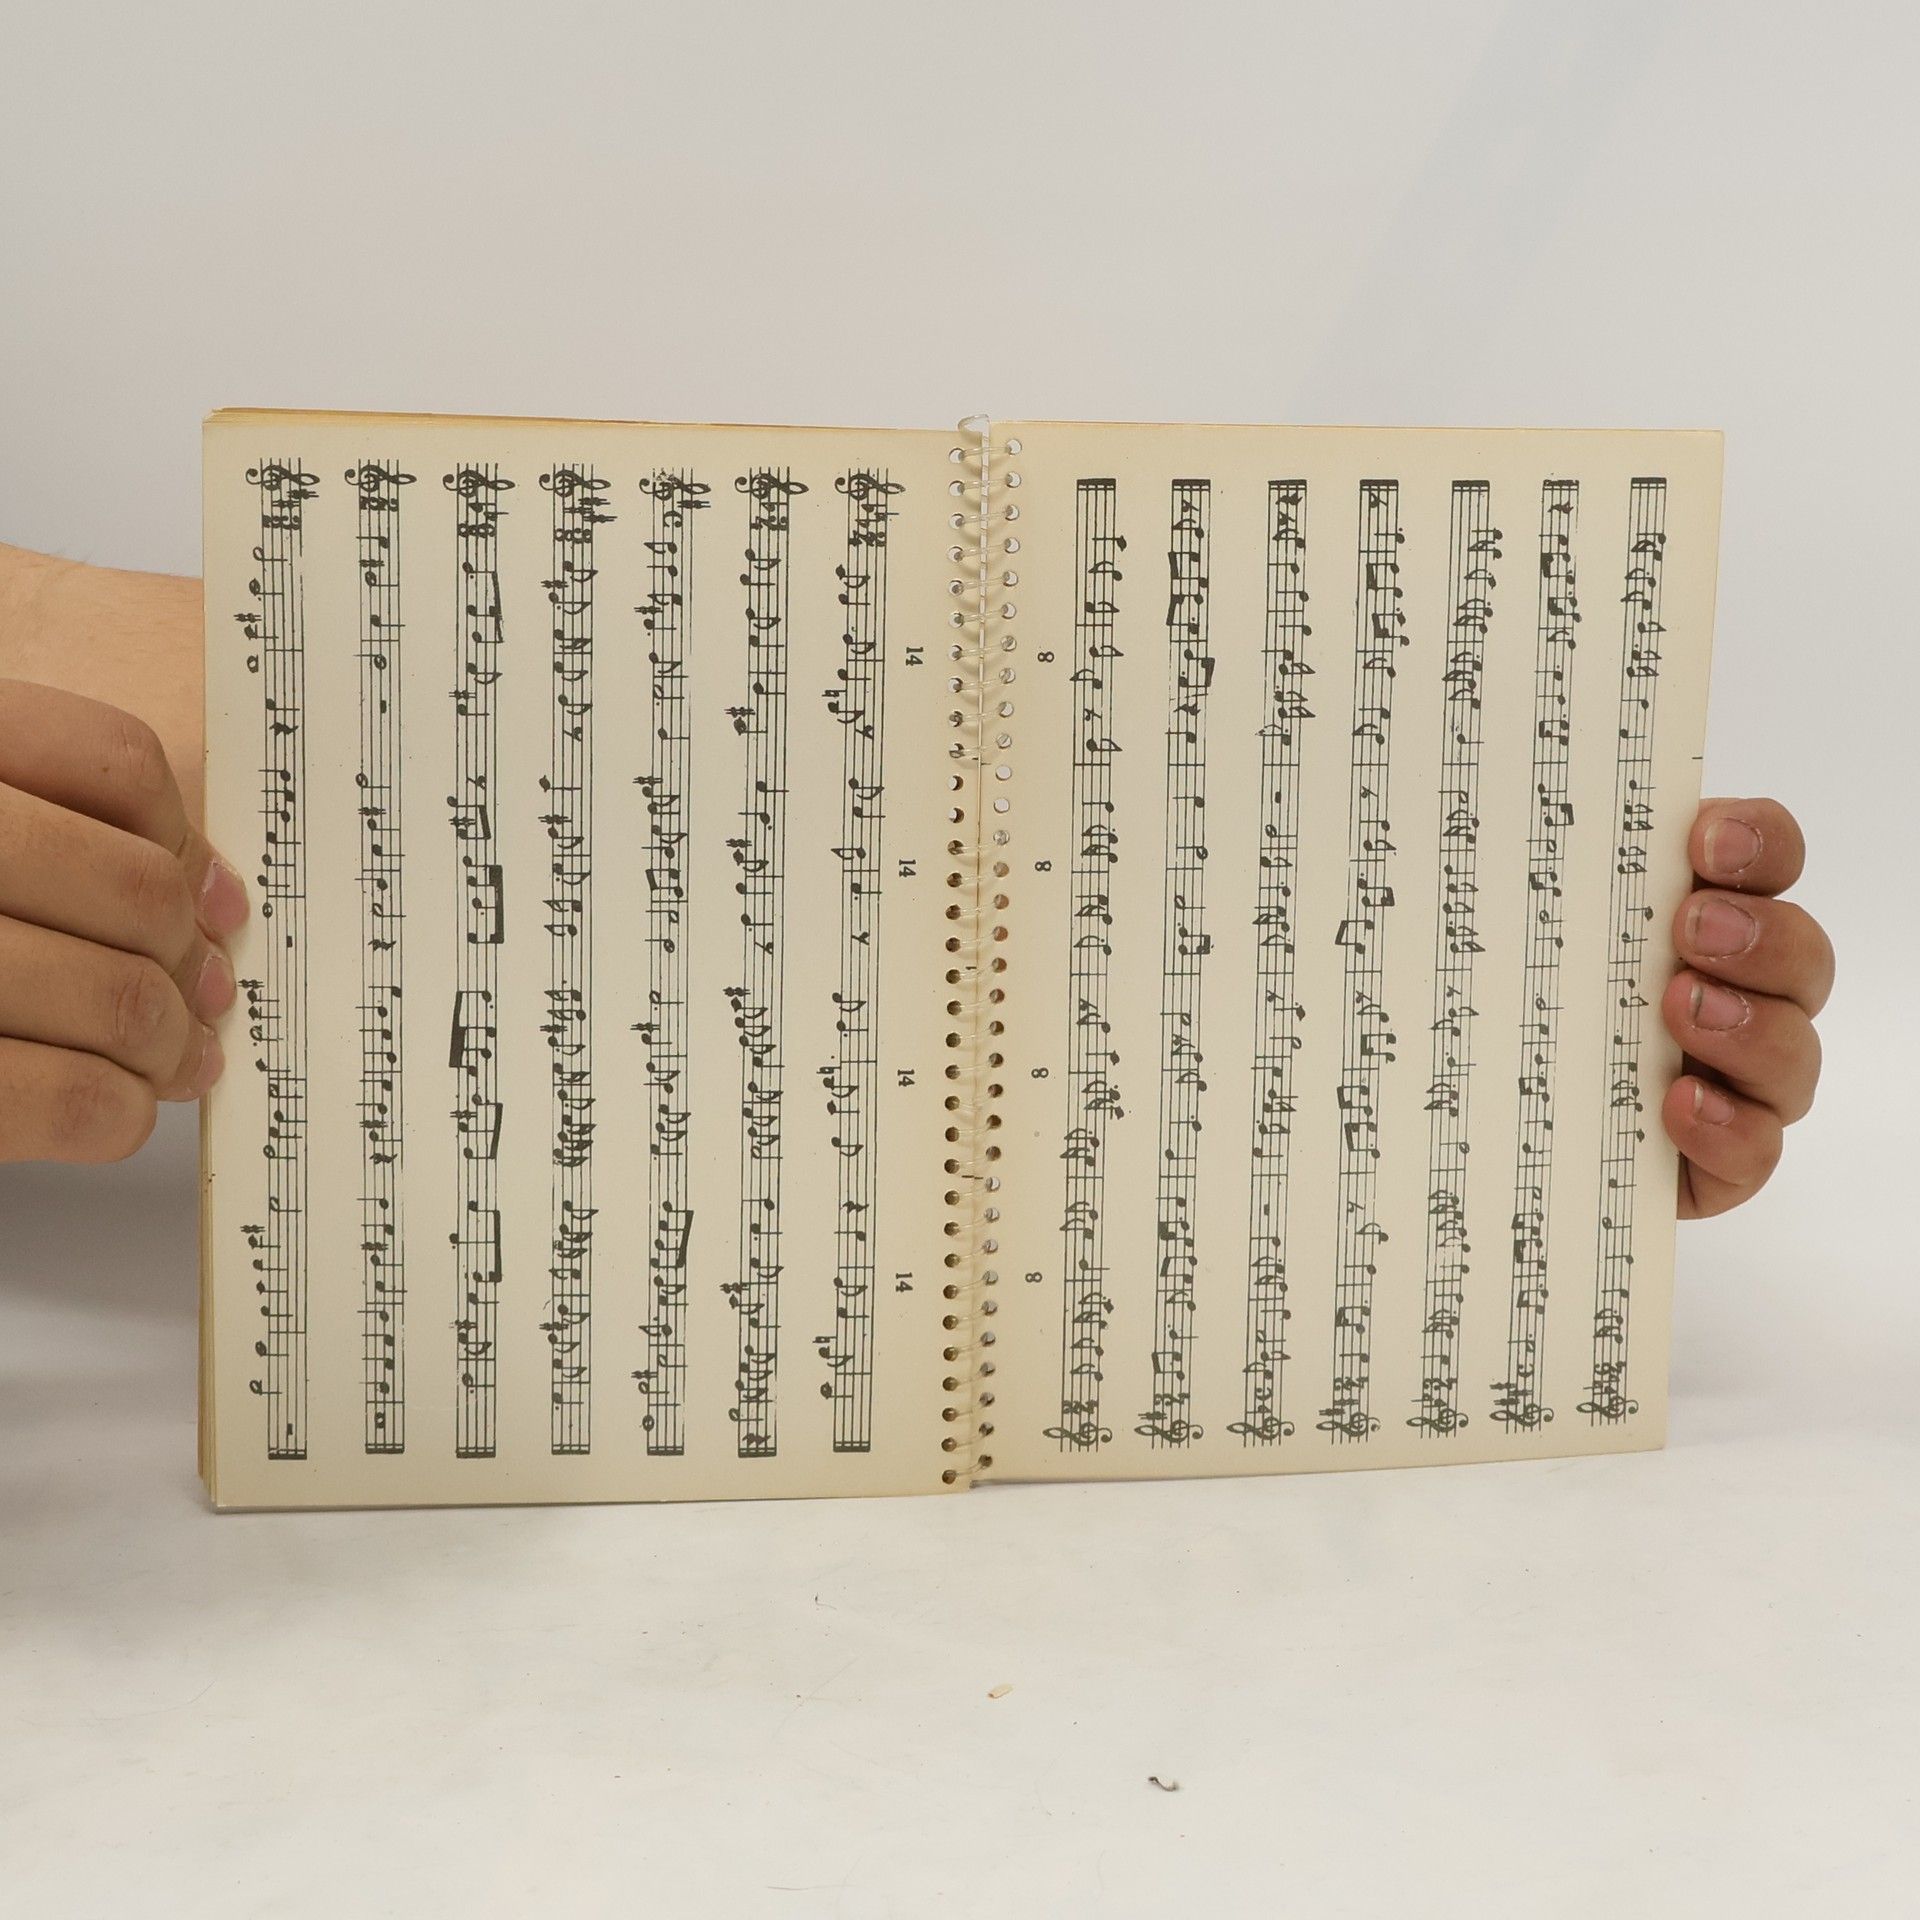 14 14 14 14
8 8 8 8